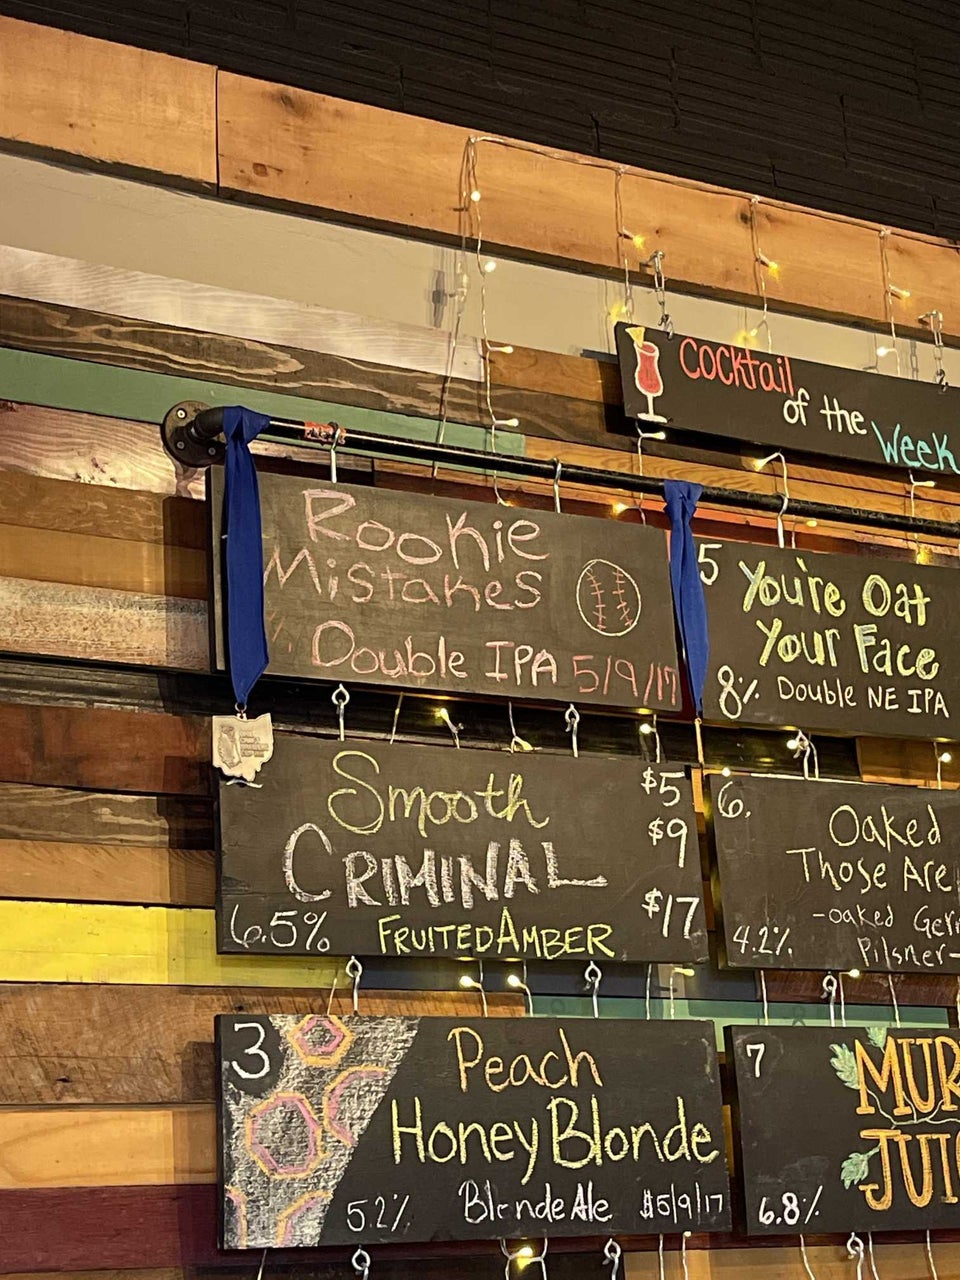 Cocktail
of the
Week
Rookie
Mistakes
Double IPA 5/9/17
5
You're Oat
Your Face
8% Double NE IPA
Smooth
CRIMINAL
6.5% FRUITED AMBER
$5
$9
$17
6.
Oaked
Those Are
-Oaked Ger
4.2% Pilsner-
3
Peach
Honey Blonde
5.2% Blonde Ale $5/9/17
7
MUR
JUI
6.8%